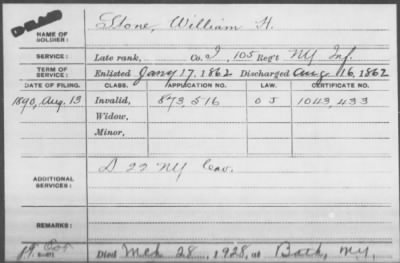 DEAD
NAME OF SOLDIER: Stone, William H.
SERVICE: Late rank, Co. I, 105 Reg't NY Inf.
TERM OF SERVICE: Enlisted Jany 17, 1862 Discharged Aug 16, 1862
DATE OF FILING. CLASS. APPLICATION NO. LAW. CERTIFICATE NO.
1890, Aug. 13 Invalid, 873,516 O J 1043,433
Widow,
Minor,
ADDITIONAL SERVICES: D 22 NY Cav.
REMARKS:
Died Mch 28, 1928, at Bath, NY,